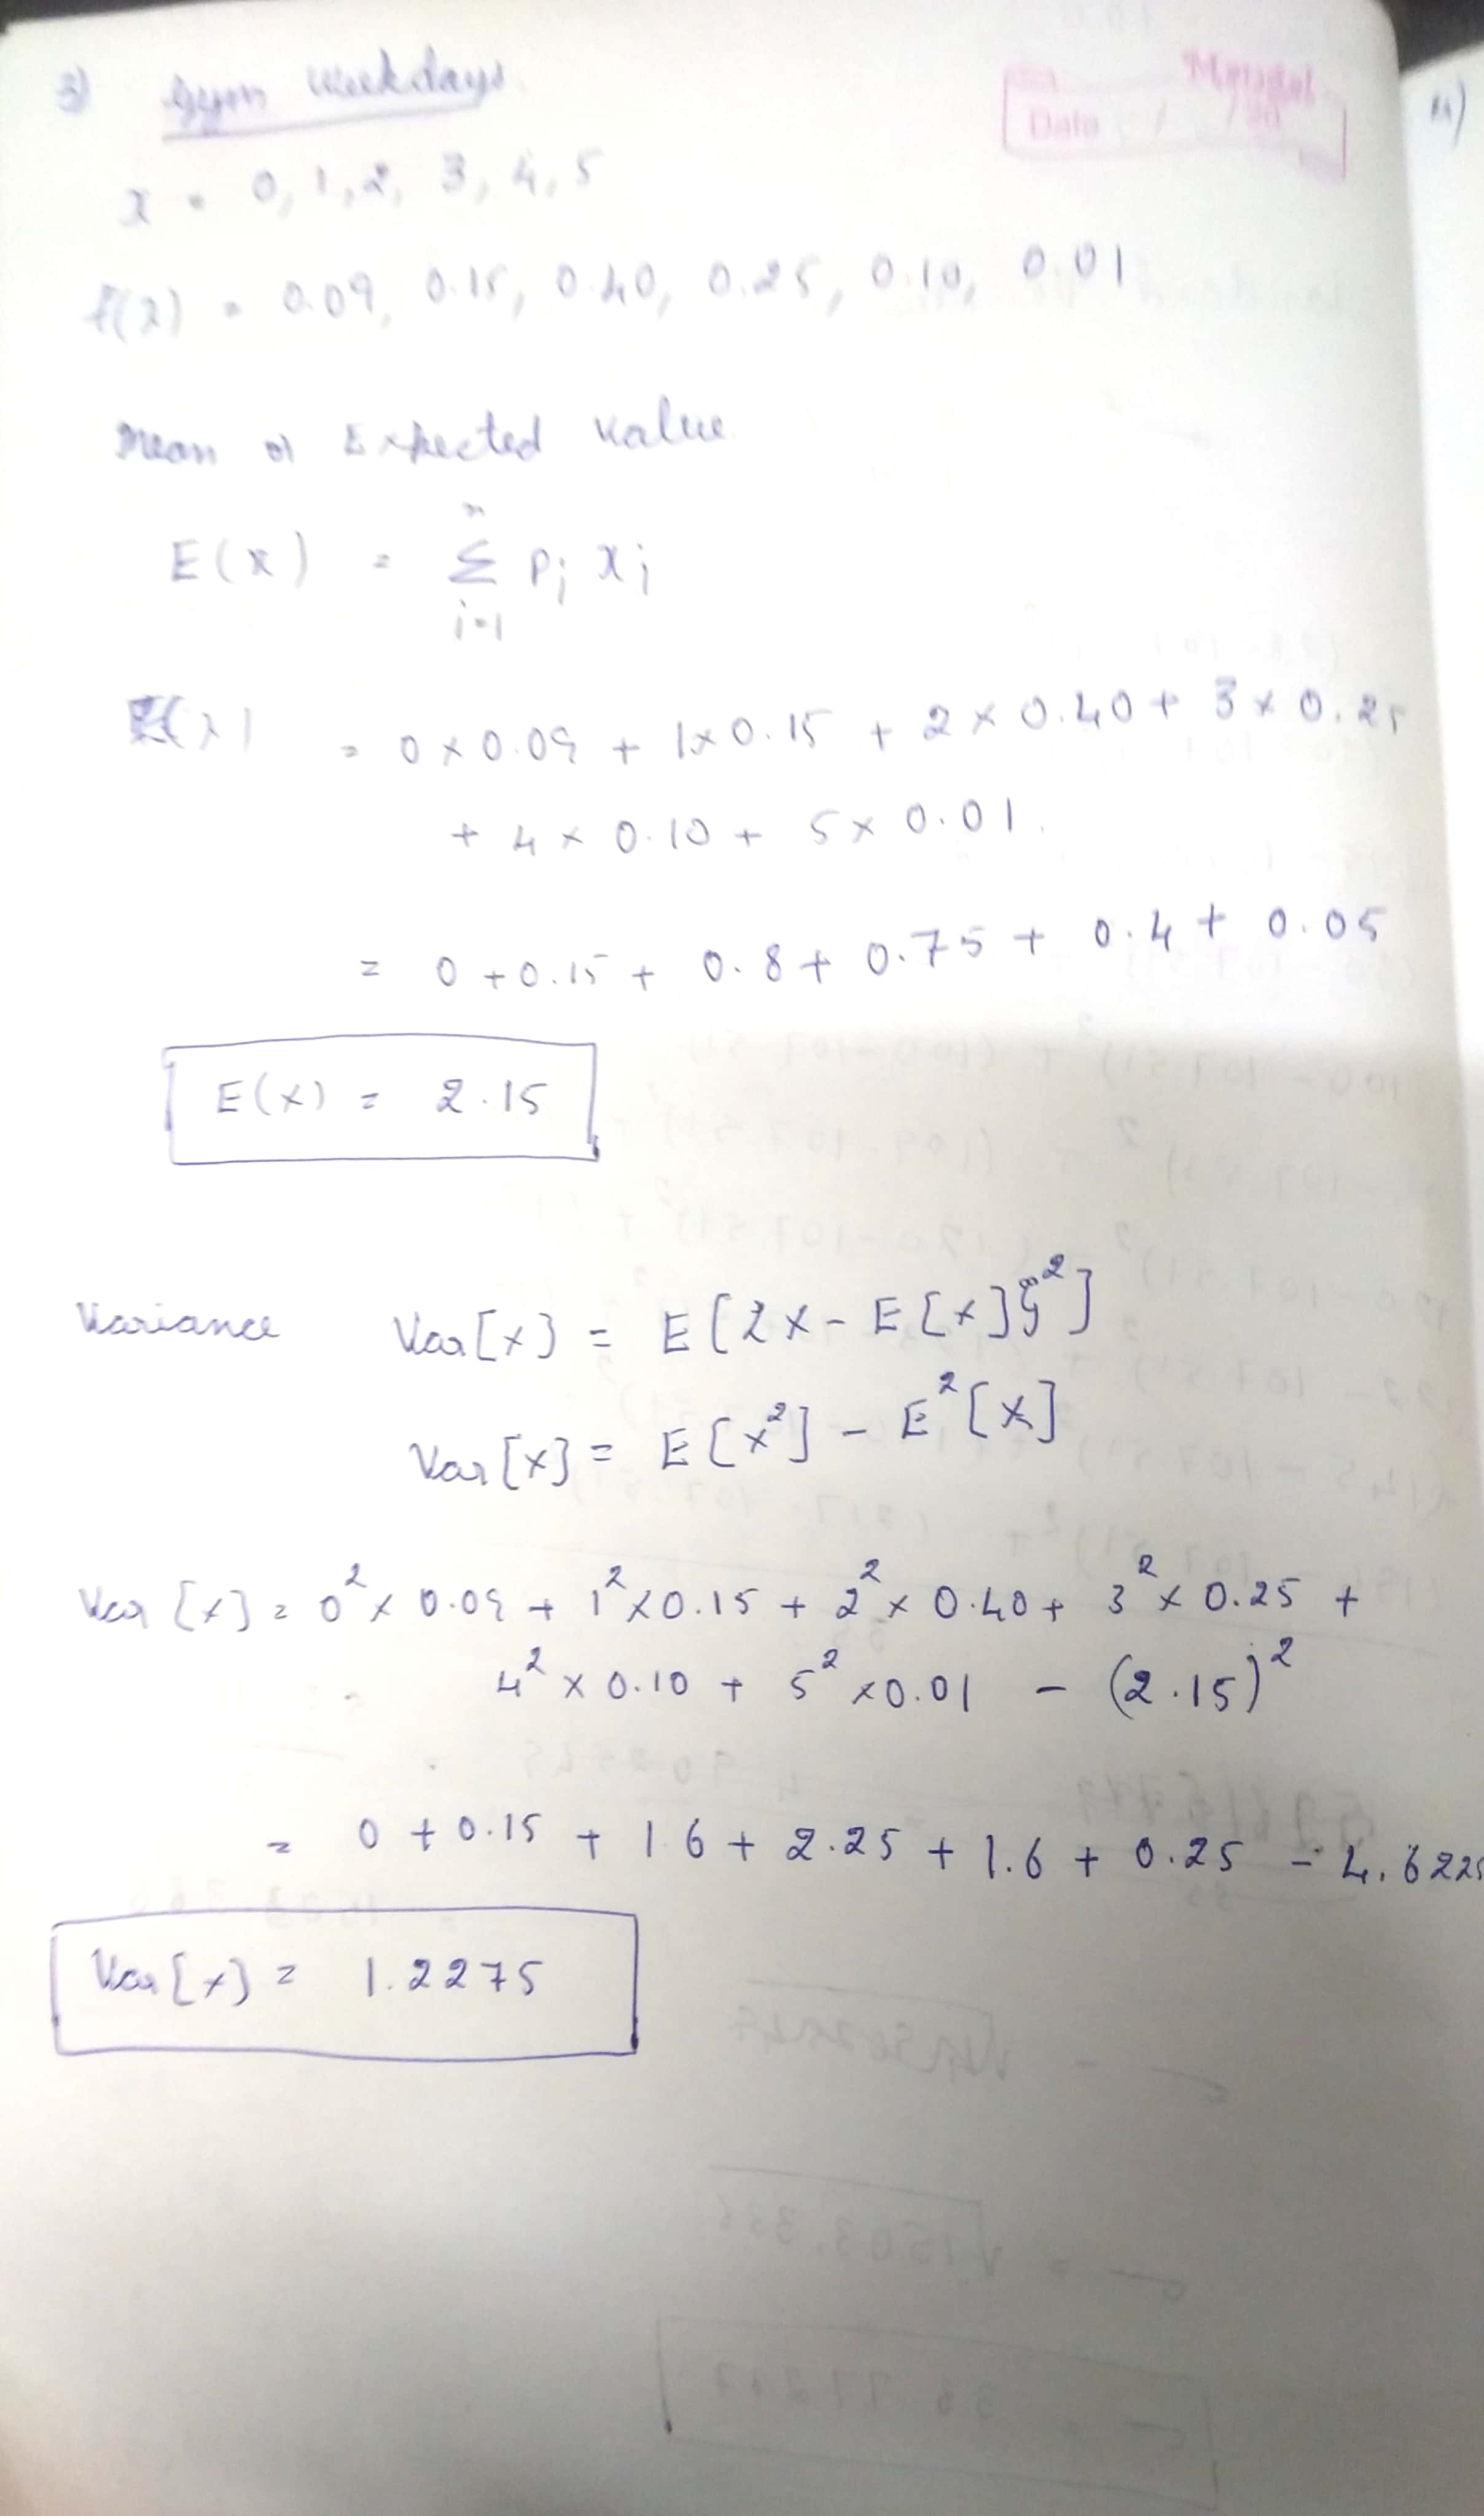 3) Gym Weekdays
Date / / 20
x = 0, 1, 2, 3, 4, 5
f(x) = 0.09, 0.15, 0.40, 0.25, 0.10, 0.01
Mean or Expected Value
n
E(x) = Σ Pi xi
i=1
E(x) = 0 × 0.09 + 1×0.15 + 2 × 0.40 + 3 × 0.25
+ 4 × 0.10 + 5 × 0.01.
= 0 + 0.15 + 0.8 + 0.75 + 0.4 + 0.05
E(x) = 2.15
Variance Var[x] = E[{x - E[x]}²]
Var[x] = E[x²] - E²[x]
Var[x] = 0² × 0.09 + 1² × 0.15 + 2² × 0.40 + 3² × 0.25 +
4² × 0.10 + 5² × 0.01 - (2.15)²
= 0 + 0.15 + 1.6 + 2.25 + 1.6 + 0.25 - 4.6225
Var[x] = 1.2275